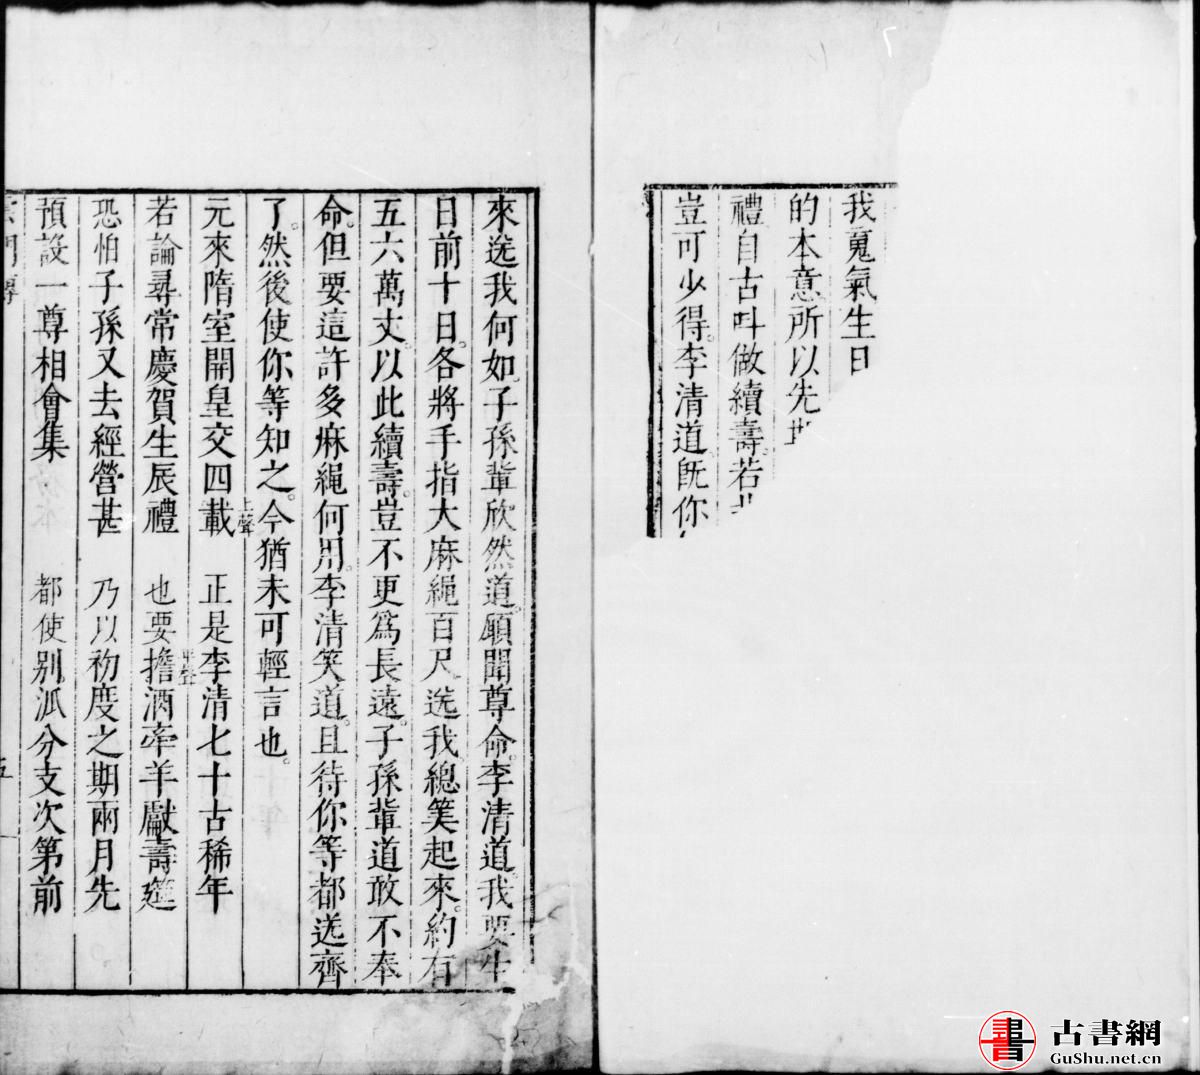 我䰟氣生日
的本意所以先
禮自古呌做續壽。若
豈可少得。李清道。既你
來送我何如。子孫輩欣然道。願聞尊命。李清道。我要生
日前十日。各將手指大麻繩百尺。送我。總筭起來。約有
五六萬丈。以此續壽。豈不更爲長遠。子孫輩道敢不奉
命。但要這許多麻繩何用。李清笑道。且待你等都送齊
了。然後使你等知之。今猶未可輕言也。
元來隋室開皇交四載上聲 正是李清七十古稀年
若論尋常慶賀生辰禮 也要擔平聲酒牽羊獻壽筵
恐怕子孫又去經營甚 乃以初度之期兩月先
預設一尊相會集 都使別派分支次第前
雲門傳 五
書 古書網
GuShu.net.cn